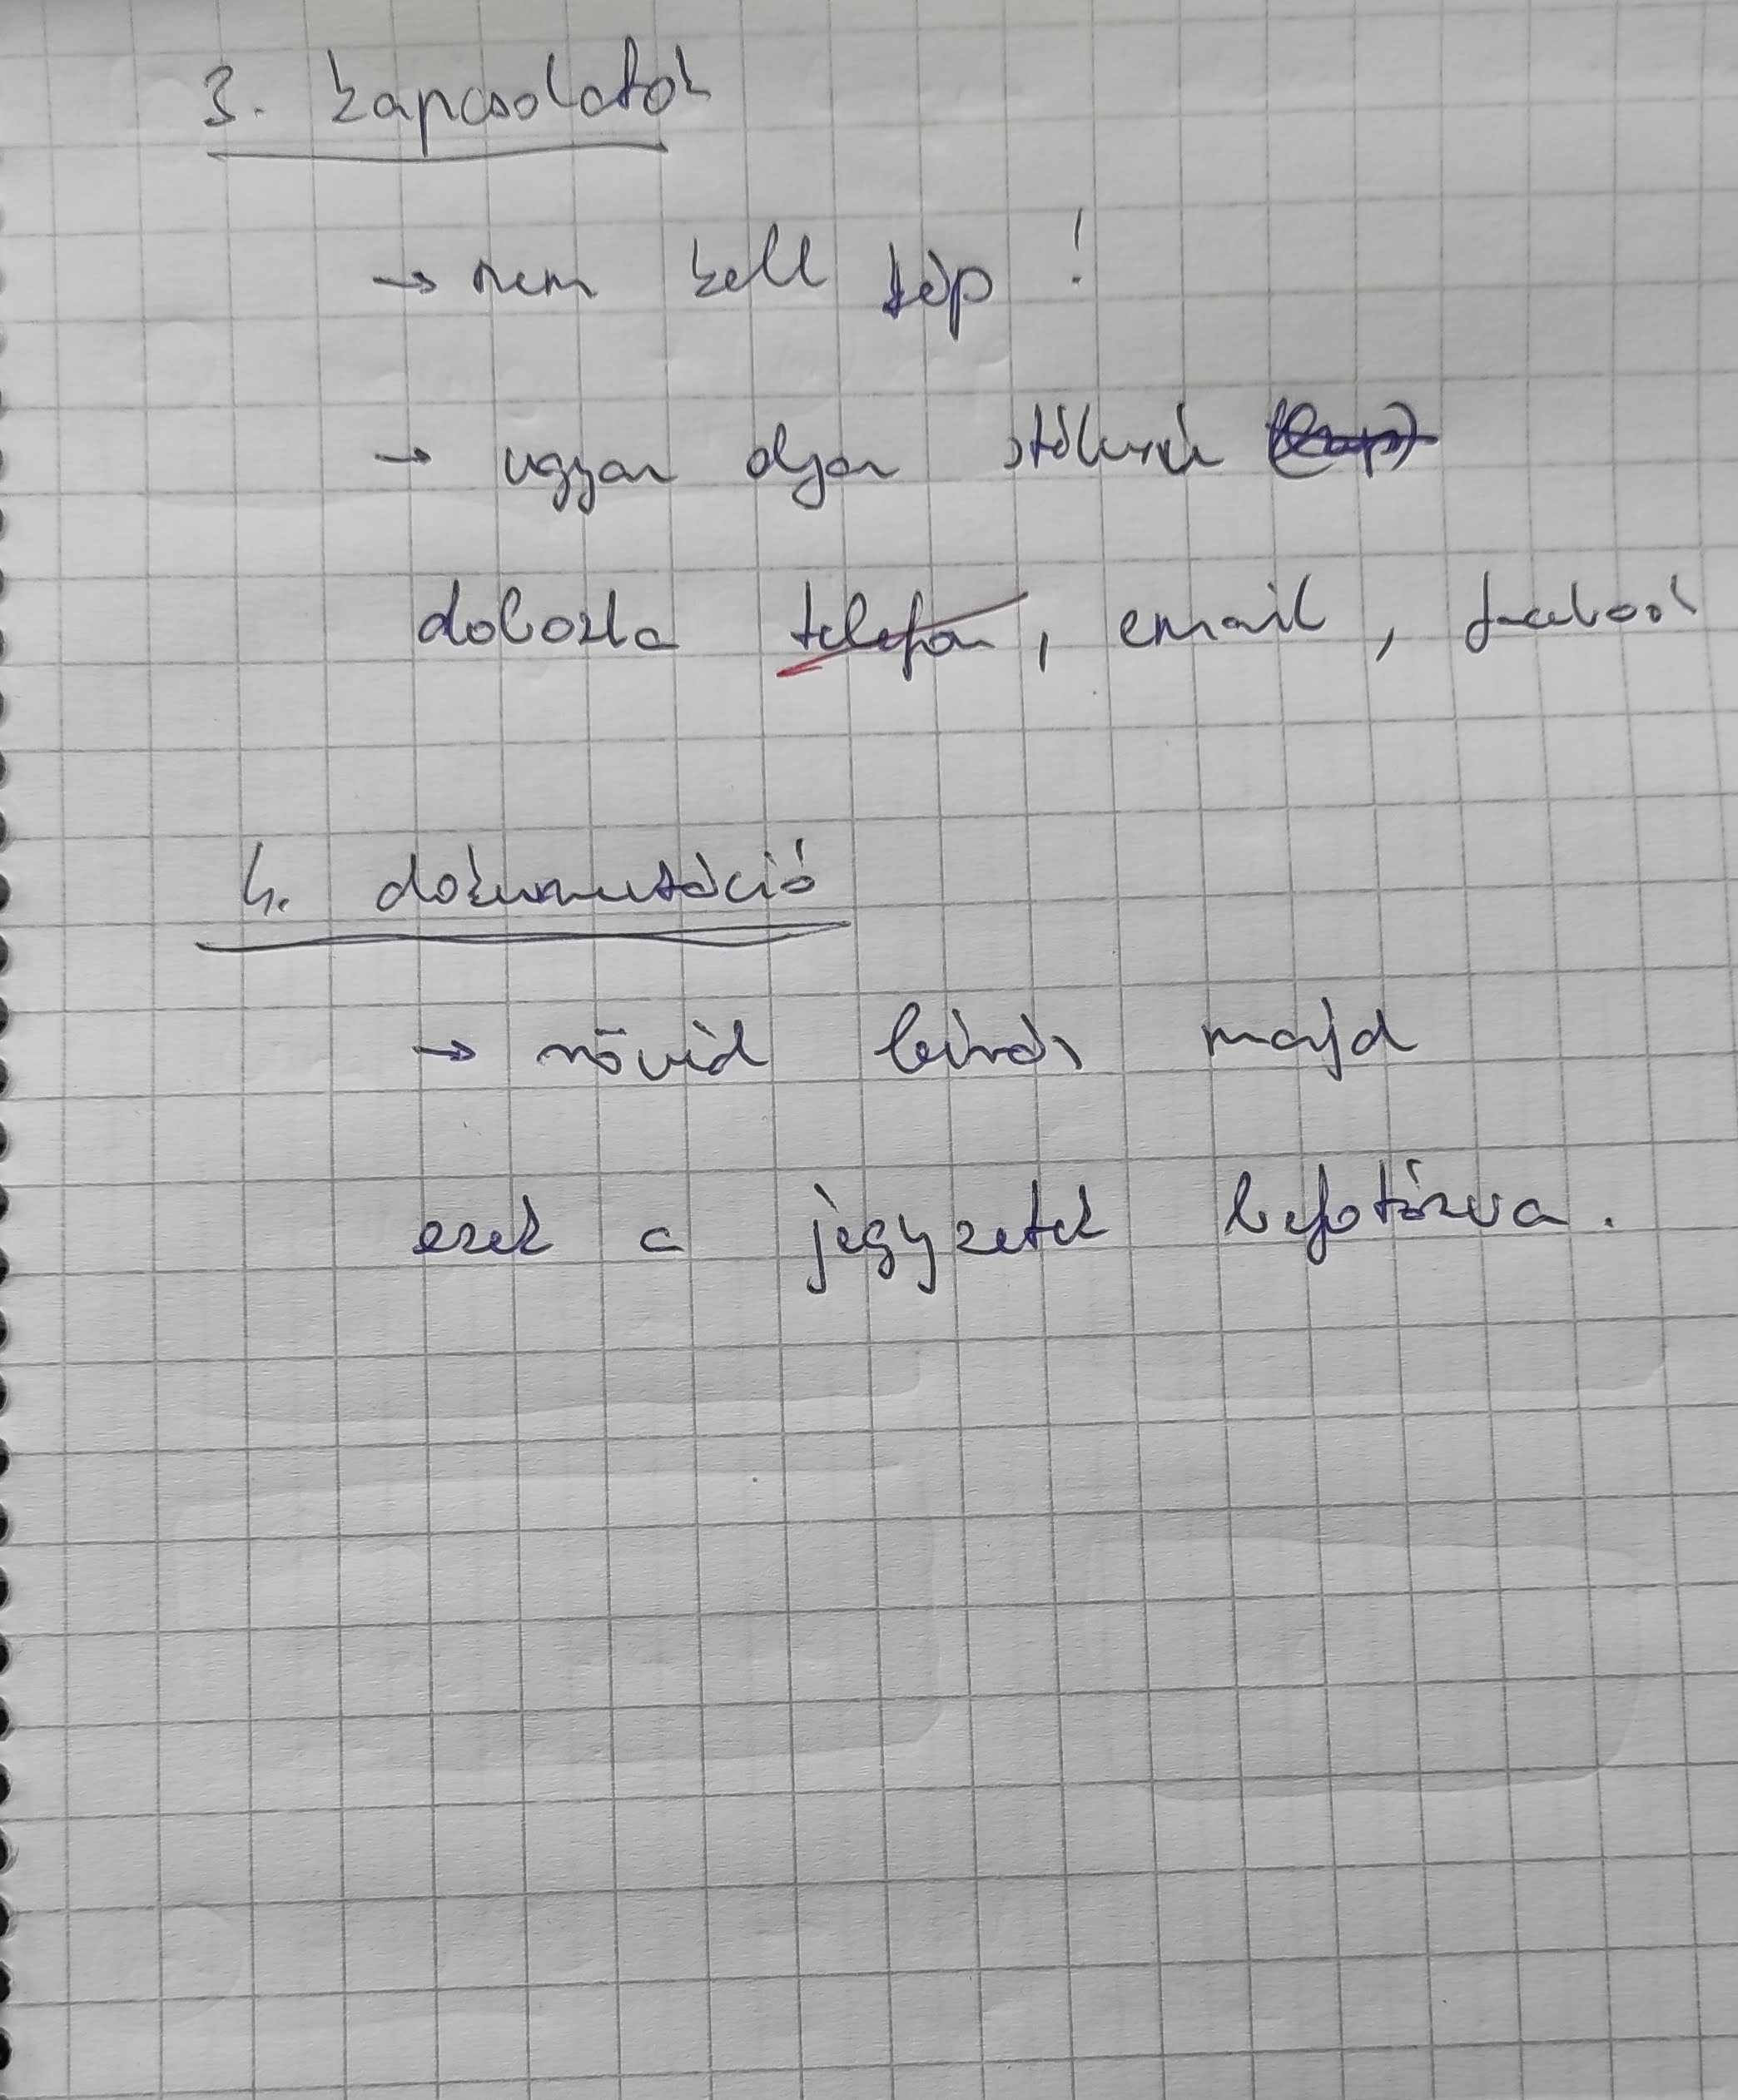 3. kapcsolatok
→ nem kell kép !
→ ugyan olyan stílusú
dobozba telefon, email, facebook
4. dokumentáció
→ rövid leírás majd
ezek a jegyzetek befotózva.